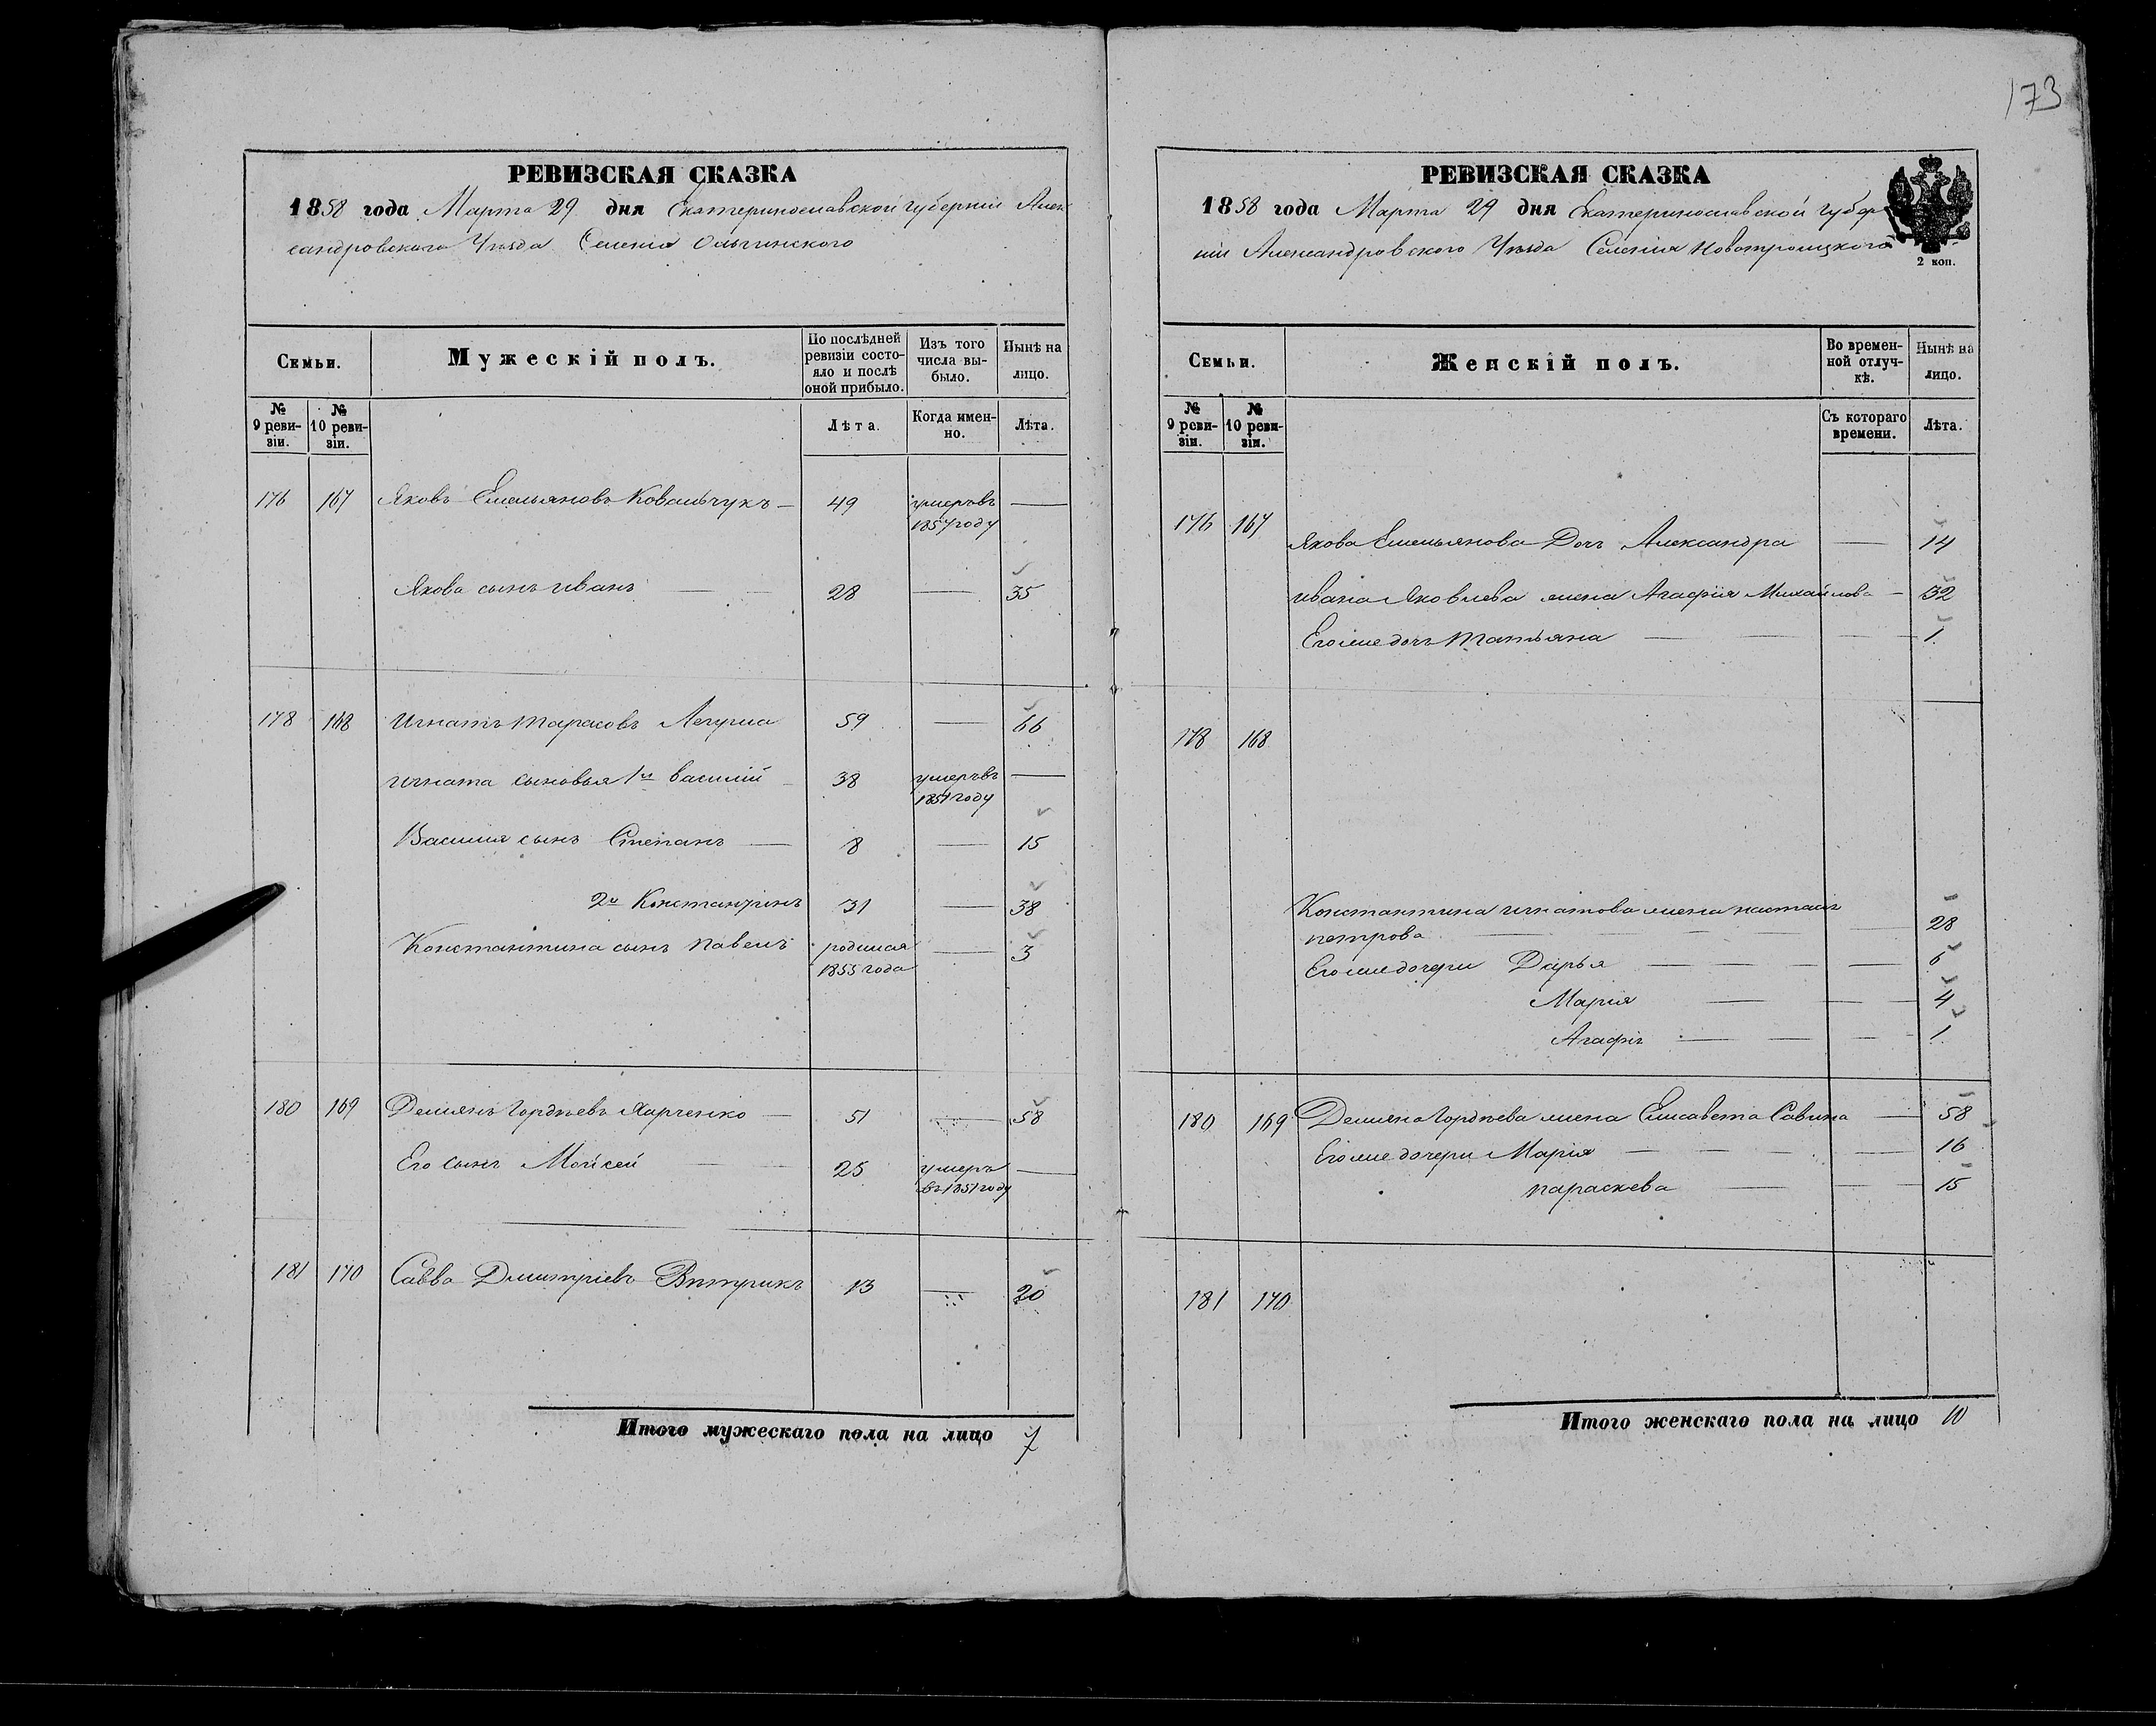 173
РЕВИЗСКАЯ СКАЗКА
1858 года Марта 29 дня Екатеринославской Губернiи Алек
сандровскаго Уѣзда Селенiя Ольгинского
Семьи.
Мужескiй полъ.
По послѣдней ревизiи состояло и послѣ оной прибыло.
Изъ того числа выбыло.
Нынѣ на лицо.
№ 9 ревизiи.
№ 10 ревизiи.
Лѣта.
Когда именно.
Лѣта.
176 167 Яковъ Емельяновъ Ковальчукъ — 49 умеръ въ —
1857 году
Якова сынъ иванъ — 28 — 35
178 168 Игнатъ Тарасовъ 59 — 66
Игната сыновья 1й василiй 38 умеръ въ —
1851 году
Василия сынъ Степанъ — 8 — 15
2й Константинъ 31 — 38
Константина сынъ павелъ родился — 3
1855 года
180 169 Демянъ Гордѣевъ Харченко — 51 — 58
Его сынъ Мойсей 25 умеръ —
въ 1851 году
181 170 Савва Дмитрiевъ 13 — 20
Итого мужескаго пола на лицо 7
РЕВИЗСКАЯ СКАЗКА
1858 года Марта 29 дня Екатеринославской Губер
нiи Александровского Уѣзда Селенiя Новотроицкого
2 коп.
Семьи.
Женскiй полъ.
Во временной отлучкѣ.
Нынѣ на лицо.
№ 9 ревизiи.
№ 10 ревизiи.
Съ котораго времени.
Лѣта.
176 167
Якова Емельянова Дочь Александра — 14
ивана Яковлева жена Агафiя Михайлова — 32
Его же дочь Татьяна — 1
178 168
Константина игнатова жена настася
петрова — 28
Его же дочери Дарья — 6
Марiя — 4
Агафiя — 1
180 169 Демяна Гордѣева жена Елисавета Савина — 58
Его же дочери Марiя — 16
параскева — 15
181 170
Итого женскаго пола на лицо 10